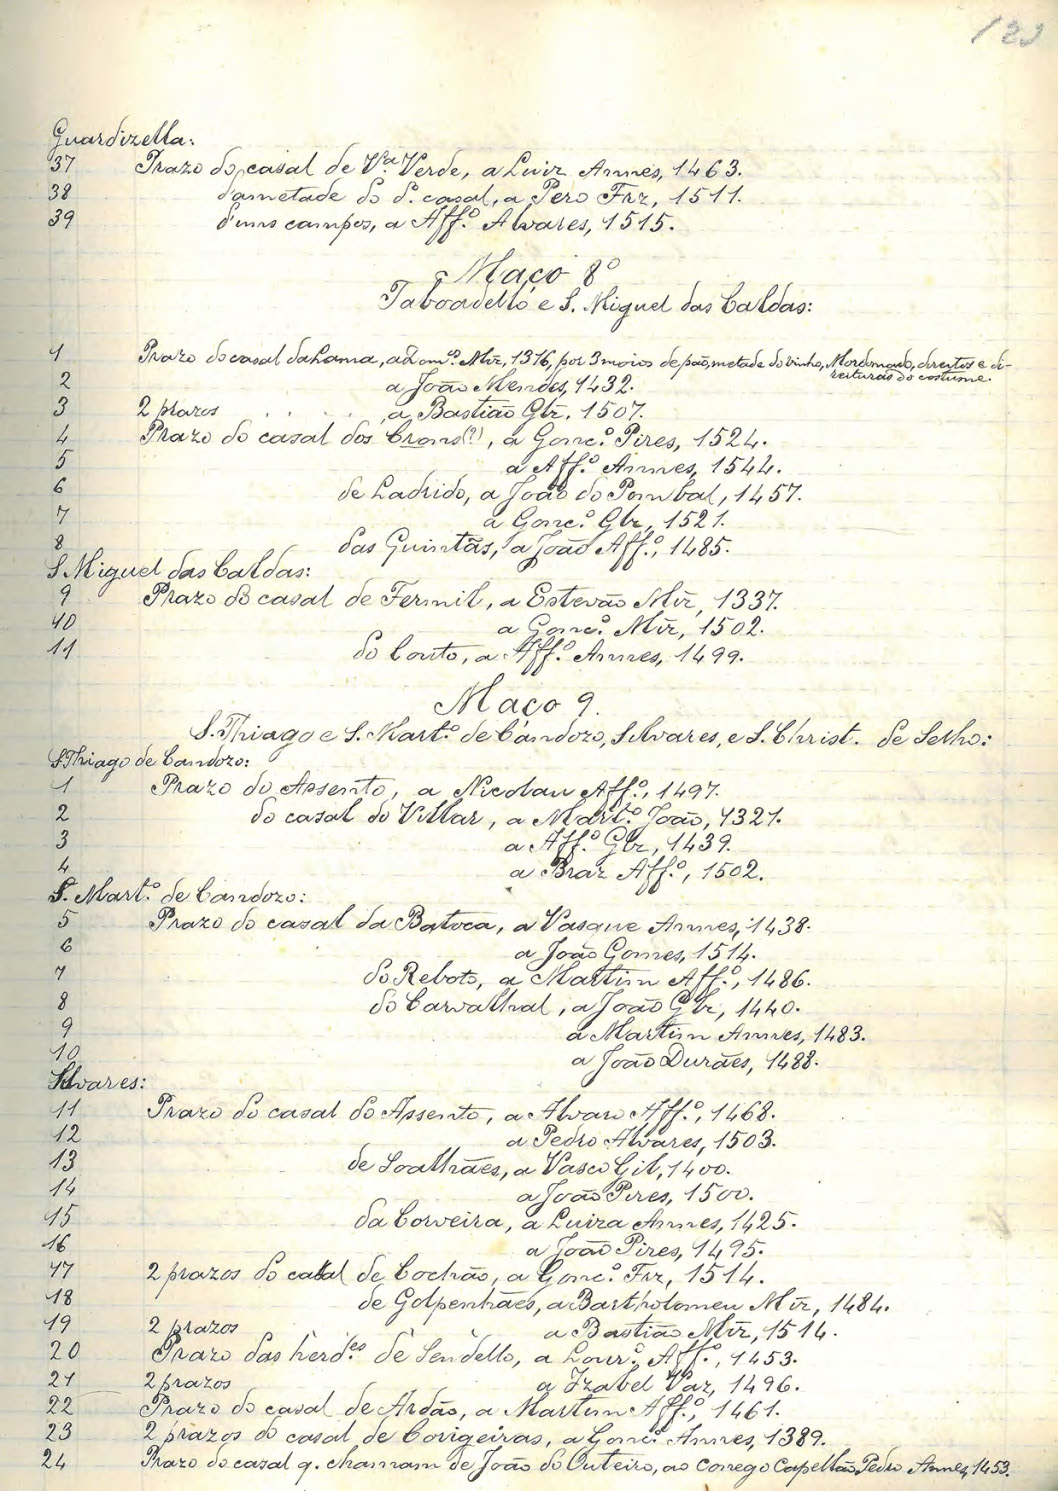 123
Guardizella:
37 Prazo do casal de Vª Verde, a Luiz Annes, 1463.
38 d'ametade do d. casal, a Pero Frz, 1511.
39 d'uns campos, a Aff.º Alvares, 1515.
Maço 8º
Taboadello e S. Miguel das Caldas:
1 Prazo do casal da Lama, a Dom.ºˢ Miz, 1316, por 3 moios de pão, metade do vinho, Mordomado, direitos e di-
reituras do costume.
2 a João Mendes, 1432.
3 2 prazos . . . . , a Bastião Glz. 1507.
4 Prazo do casal dos Crons(?), a Gonc.º Pires, 1524.
5 a Aff.º Annes, 1544.
6 de Ladrido, a João do Pombal, 1457.
7 a Gonc.º Glz, 1521.
8 das Quintãs, a João Aff.º, 1485.
S Miguel das Caldas:
9 Prazo do casal de Fermil, a Estevão Miz, 1337.
10 a Gonc.º Miz, 1502.
11 do Couto, a Aff.º Annes, 1499.
Maço 9.
S. Thiago e S. Mart.º de Candozo, Silvares, e S. Christ. de Selho:
S Thiago de Candozo:
1 Prazo do Assento, a Nicolau Aff.º, 1497.
2 do casal do Villar, a Mart.º João, 1321.
3 a Aff.º Glz, 1439.
4 a Braz Aff.º, 1502.
S. Mart.º de Candozo:
5 Prazo do casal da Batoca, a Vasque Annes, 1438.
6 a João Gomes, 1514.
7 do Reboto, a Martim Aff.º, 1486.
8 do Carvalhal, a João Glz, 1440.
9 a Martim Annes, 1483.
10 a João Durães, 1488.
Silvares:
11 Prazo do casal do Assento, a Alvaro Aff.º, 1468.
12 a Pedro Alvares, 1503.
13 de Soalhães, a Vasco Gil, 1400.
14 a João Pires, 1500.
15 da Corveira, a Luiza Annes, 1425.
16 a João Pires, 1495.
17 2 prazos do casal de Cochão, a Gonc.º Frz, 1514.
18 de Golpenhães, a Bartholomeu Miz, 1484.
19 2 prazos a Bastião Miz, 1514.
20 Prazo das herd.ᵉˢ de Sendello, a Lour.º Aff.º, 1453.
21 2 prazos a Izabel Vaz, 1496.
22 Prazo do casal de Ardão, a Martim Aff.º, 1461.
23 2 prazos do casal de Corigeiras, a Gonc.º Annes, 1389.
24 Prazo do cazal q. chamam de João do Outeiro, ao Conego Capellão, Pedro Annes, 1453.